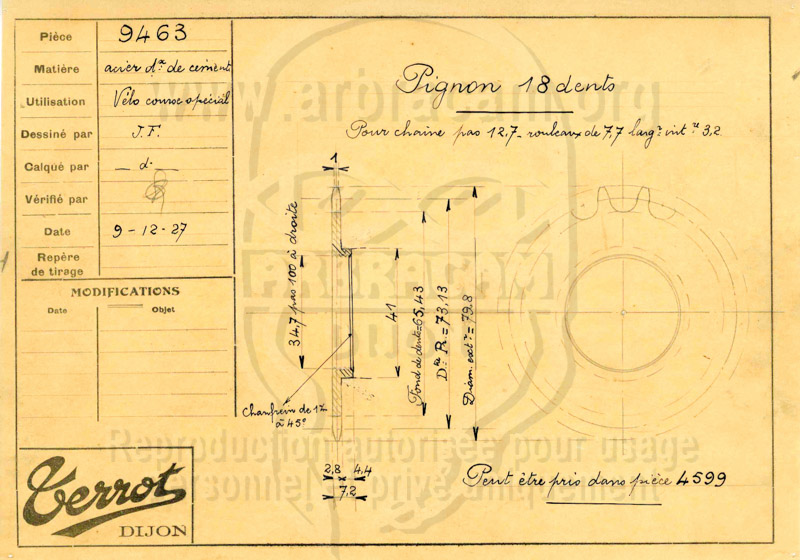 Pièce 9463
Matière acier dx de cement
Utilisation Vélo course spécial
Dessiné par J.F.
Calqué par _ d° _
Vérifié par
Date 9-12-27
Repère
de tirage
MODIFICATIONS
Date Objet
Terrot
DIJON
Pignon 18 dents
Pour chaine pas 12,7 _ rouleaux de 7,7 largr intre 3,2
1
34,7 pas 100 à droite
41
Fond de dents = 65,43
Dre P. = 73,13
Diam. extr = 79,8
Chanfrein de 1m
à 45°
2,8 4,4
7,2
Peut être pris dans pièce 4599
www.arbracam.org
ARBRACAM
Reproduction autorisée pour usage
personnel et privé uniquement